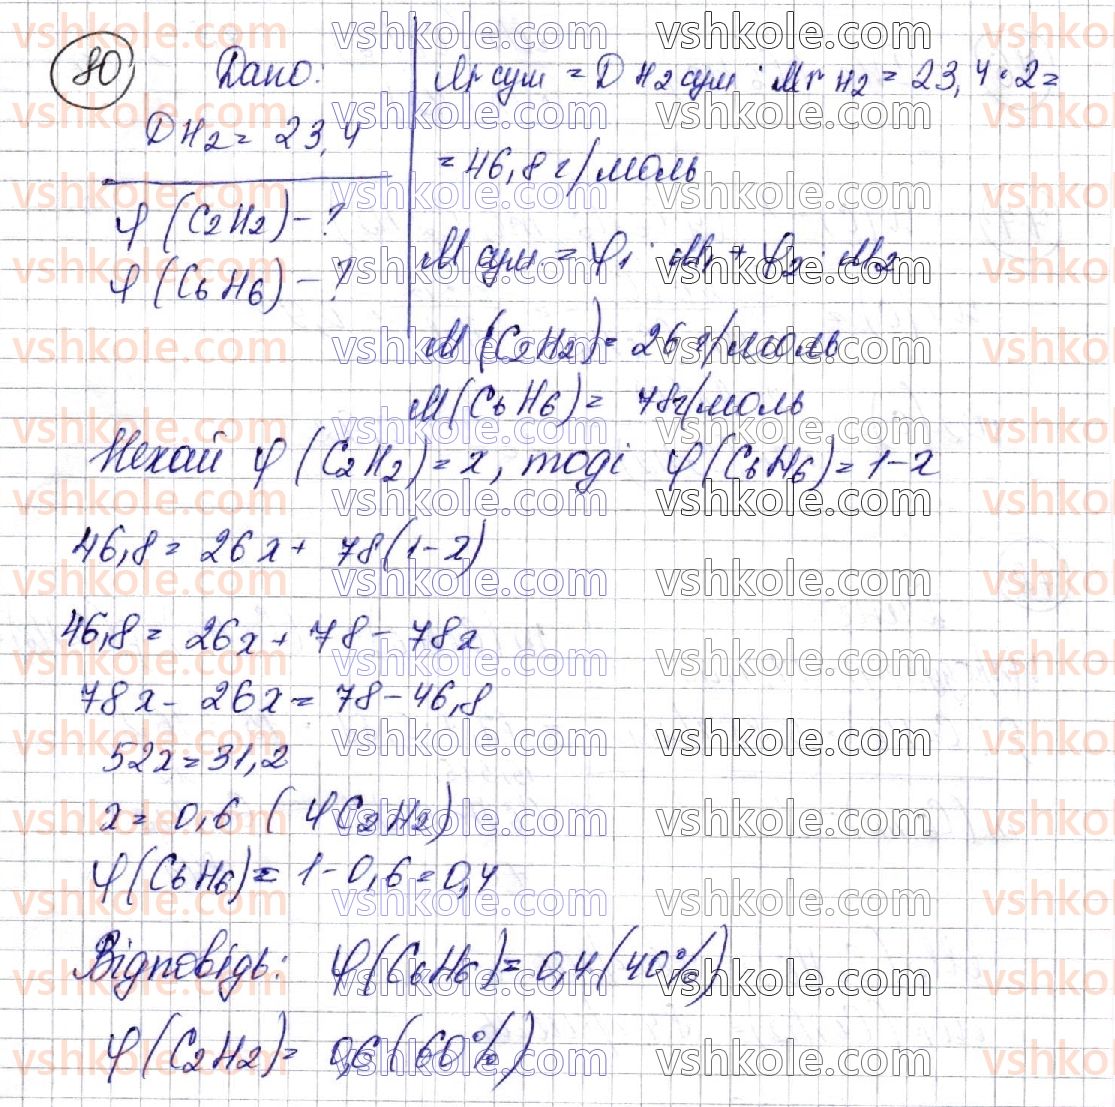 80
Дано:
D H2 = 23,4
φ (C2H2) - ?
φ (C6H6) - ?
Mr сум = D H2 сум · Mr H2 = 23,4 · 2 =
= 46,8 г/моль
M сум = φ1 · M1 + φ2 · M2
M (C2H2) = 26 г/моль
M (C6H6) = 78 г/моль
Нехай φ (C2H2) = x, тоді φ (C6H6) = 1-x
46,8 = 26x + 78(1-x)
46,8 = 26x + 78 - 78x
78x - 26x = 78 - 46,8
52x = 31,2
x = 0,6 (φ C2H2)
φ (C6H6) = 1 - 0,6 = 0,4
Відповідь: φ (C6H6) = 0,4 (40%)
φ (C2H2) = 0,6 (60%)
vshkole.com